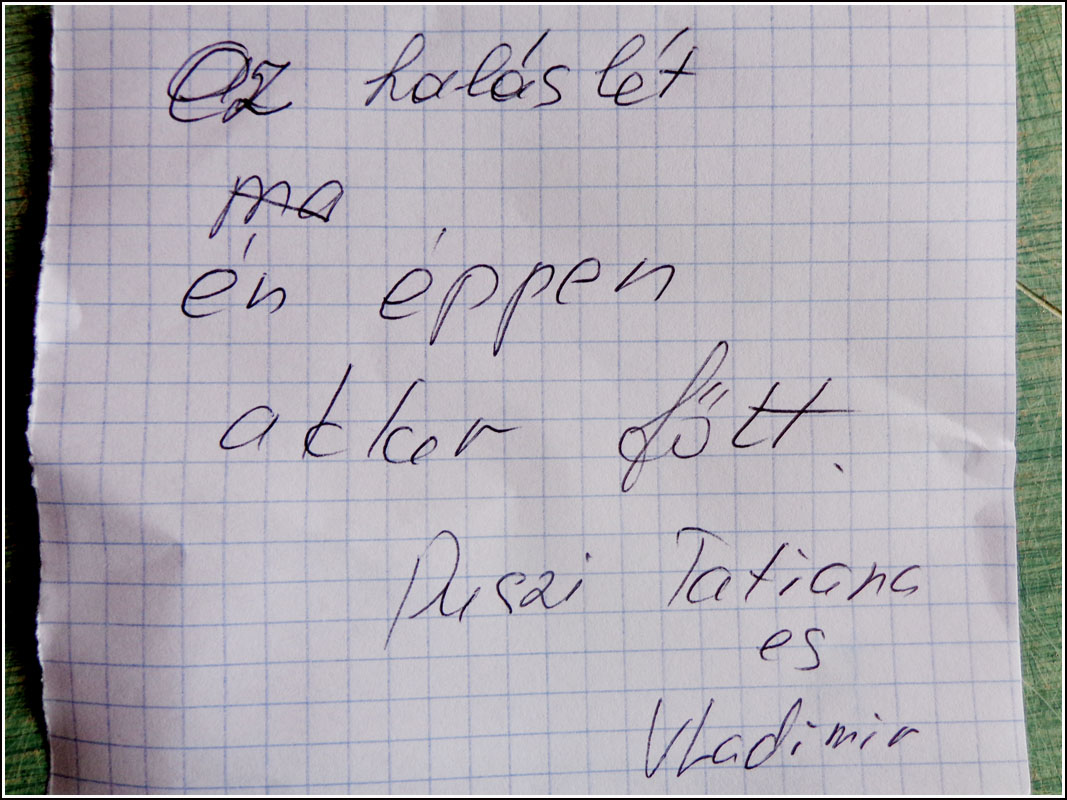 az halás lét
ma
én éppen
akkor főtt.
Puszi Tatiana
es
Vladimir